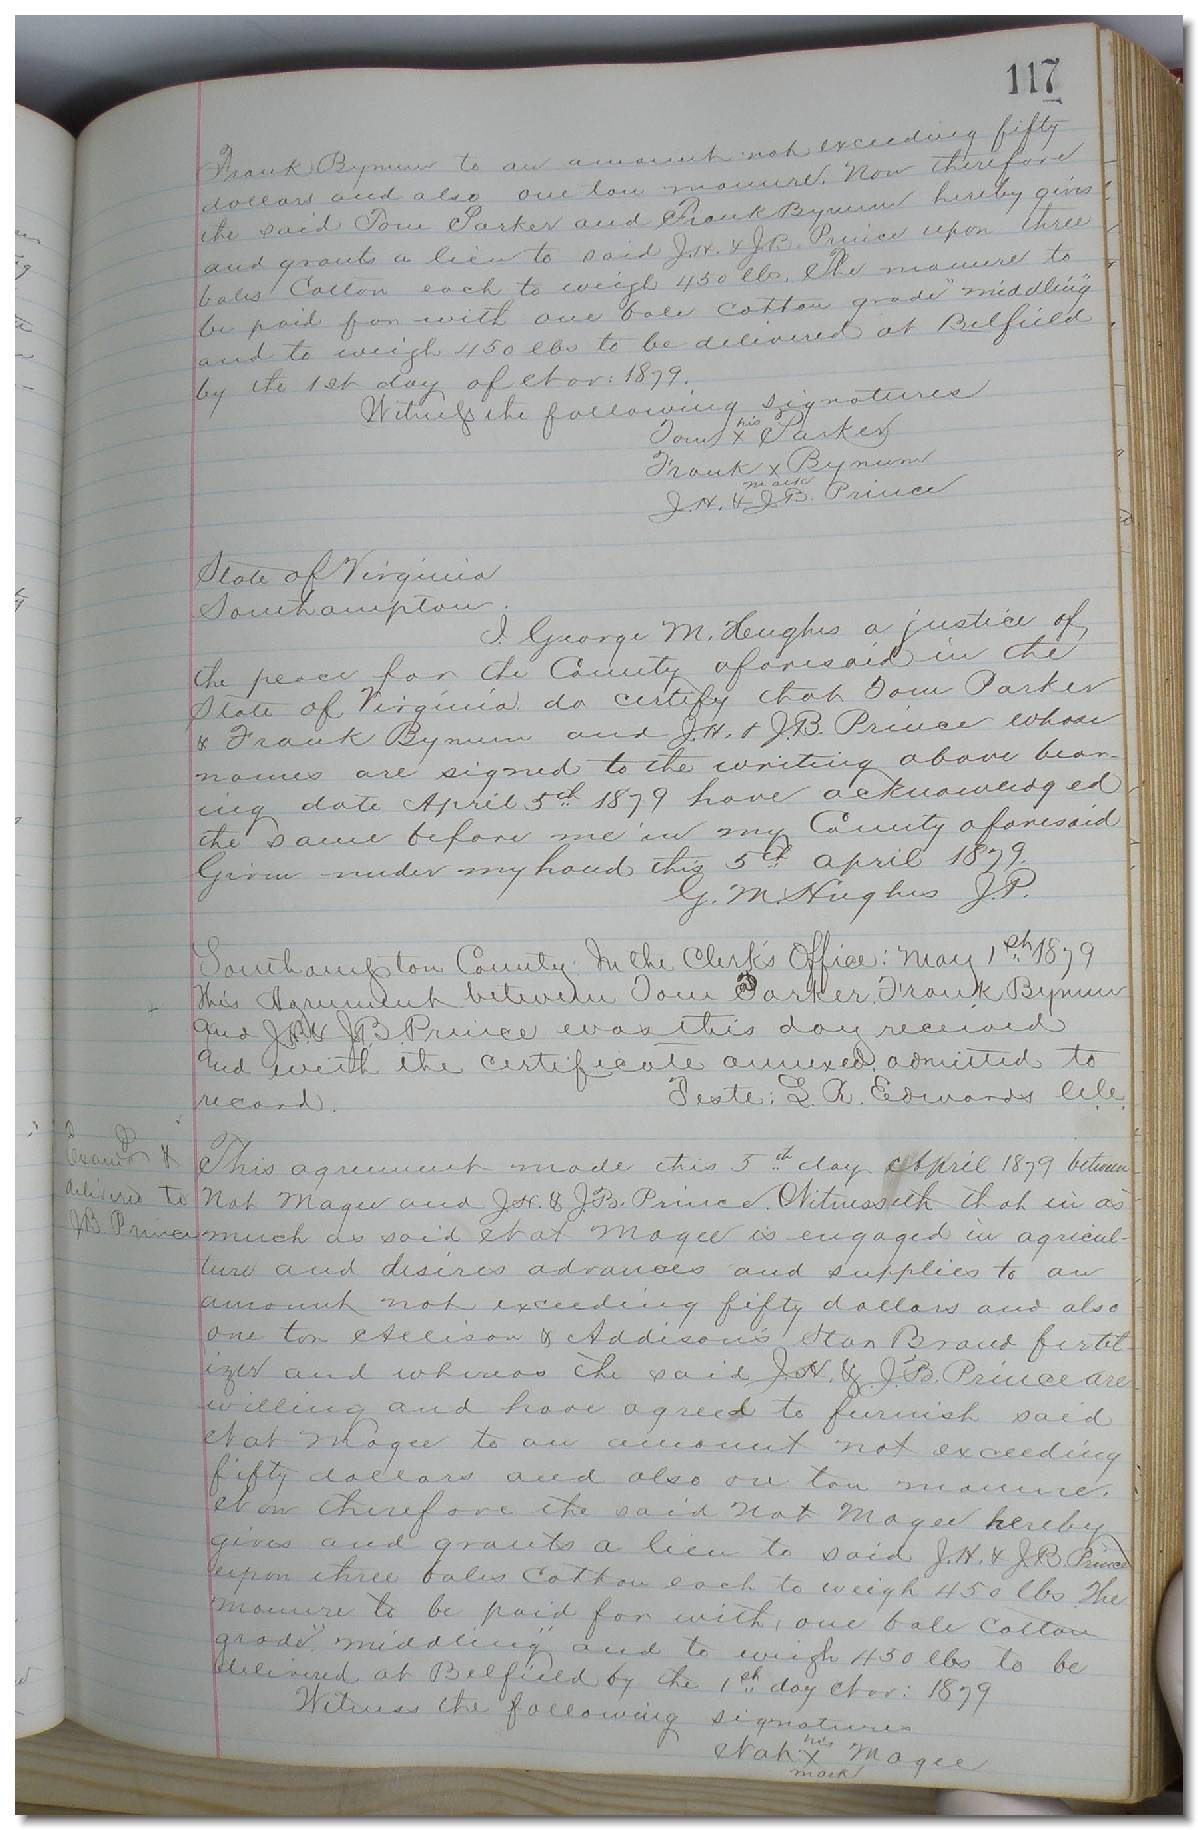 117
Frank Bynum to an amount not exceeding fifty
dollars and also one ton manure. Now therefore
the said Tom Parker and Frank Bynum hereby gives
and grants a lien to said J.H. & J.B. Prince upon three
bales Cotton each to weigh 450 lbs. The manure to
be paid for with one bale cotton grade "middling"
and to weigh 450 lbs to be delivered at Belfield
by the 1st day of Nov: 1879.
Witness the following signatures
his
Tom x Parker
Frank x Bynum
mark
J.H. & J.B. Prince
State of Virginia
Southampton.
I George M. Hughes a justice of
the peace for the County aforesaid in the
State of Virginia do certify that Tom Parker
& Frank Bynum and J.H. & J.B. Prince whose
names are signed to the writing above bear-
ing date April 5th 1879 have acknowledged
the same before me in my County aforesaid
Given under my hand this 5th april 1879.
G. M. Hughes J.P.
Southampton County: In the Clerk's Office: May 1st 1879
This Agreement between Tom Parker, Frank Bynum
and J.H. & J.B. Prince was this day received
and with the certificate annexed, admitted to
record. Teste: L. R. Edwards C.C.
This agreement made this 5th day April 1879 between
Nat Magee and J.H. & J.B. Prince. Witnesseth that in as
much as said Nat Magee is engaged in agricul-
ture and desires advances and supplies to an
amount not exceeding fifty dollars and also
one ton Allison & Addison's Star Brand fertil-
izer and whereas the said J.H. & J.B. Prince are
willing and have agreed to furnish said
Nat Magee to an amount not exceeding
fifty dollars and also on ton manure.
Now therefore the said Nat Magee hereby
gives and grants a lien to said J.H. & J.B. Prince
upon three bales Cotton each to weigh 450 lbs The
manure to be paid for with, one bale Cotton
grade "middling" and to weigh 450 lbs to be
delivered at Belfield by the 1st day Nov: 1879
Witness the following signatures
his
Nat x Magee
mark
Examd &
delivered to
JB Prince